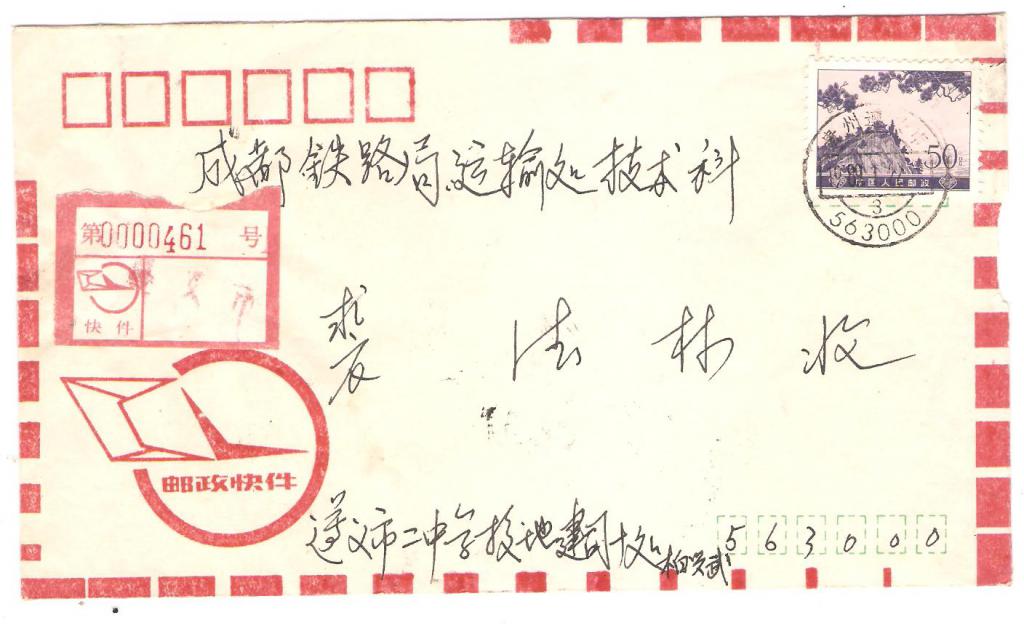 成都铁路局运输处技术科
50分
中国人民邮政
贵州遵义
3
563000
第0000461号
遵义市
快件
裘法林收
邮政快件
遵义市二中学校地建司十处
563000